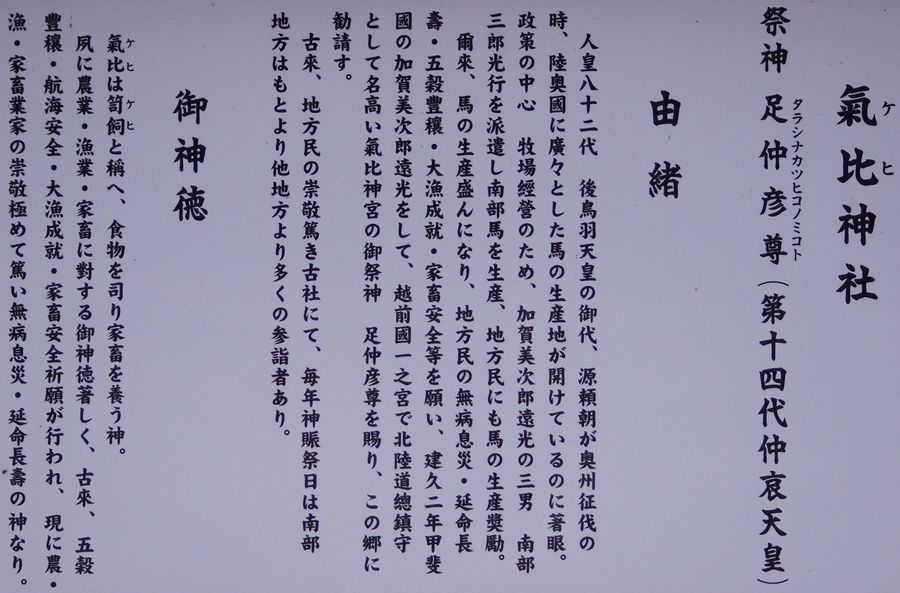 氣比神社
ケヒ
祭神 足仲彦尊（第十四代仲哀天皇）
タラシナカツヒコノミコト
由緒
人皇八十二代 後鳥羽天皇の御代、源頼朝が奥州征伐の
時、陸奥國に廣々とした馬の生産地が開けているのに著眼。
政策の中心 牧場經營のため、加賀美次郎遠光の三男 南部
三郎光行を派遣し南部馬を生産、地方民にも馬の生産奨勵。
爾來、馬の生産盛んになり、地方民の無病息災・延命長
壽・五穀豊穰・大漁成就・家畜安全等を願い、建久二年甲斐
國の加賀美次郎遠光をして、越前國一之宮で北陸道總鎮守
として名高い氣比神宮の御祭神 足仲彦尊を賜り、この郷に
勸請す。
古來、地方民の崇敬篤き古社にて、毎年神賑祭日は南部
地方はもとより他地方より多くの参詣者あり。
御神徳
氣比は笥飼と稱へ、食物を司り家畜を養う神。
ケヒ ケヒ
夙に農業・漁業・家畜に對する御神徳著しく、古來、五穀
豊穰・航海安全・大漁成就・家畜安全祈願が行われ、現に農・
漁・家畜業家の崇敬極めて篤い無病息災・延命長壽の神なり。